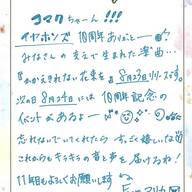 コマクちゃーん!!!
イヤホンズ 10周年ありがとー
みなさんの支えで生まれた楽曲…
『かかえきれない花束を』8月27日リリースです。
次の日 8月28日には 10周年記念の
イベントがあるよー
忘れないでいてくれたら すっごく嬉しいな
これからもキラキラの音と声を届けるね!
11年目もよろしくお願いします